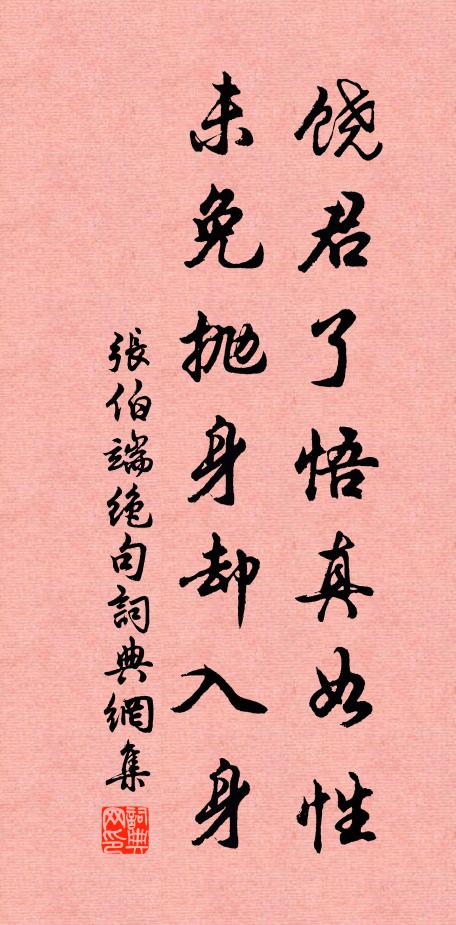 饶君了悟真如性
未免抛身却入身
張伯端绝句詞典網集
詞典网印